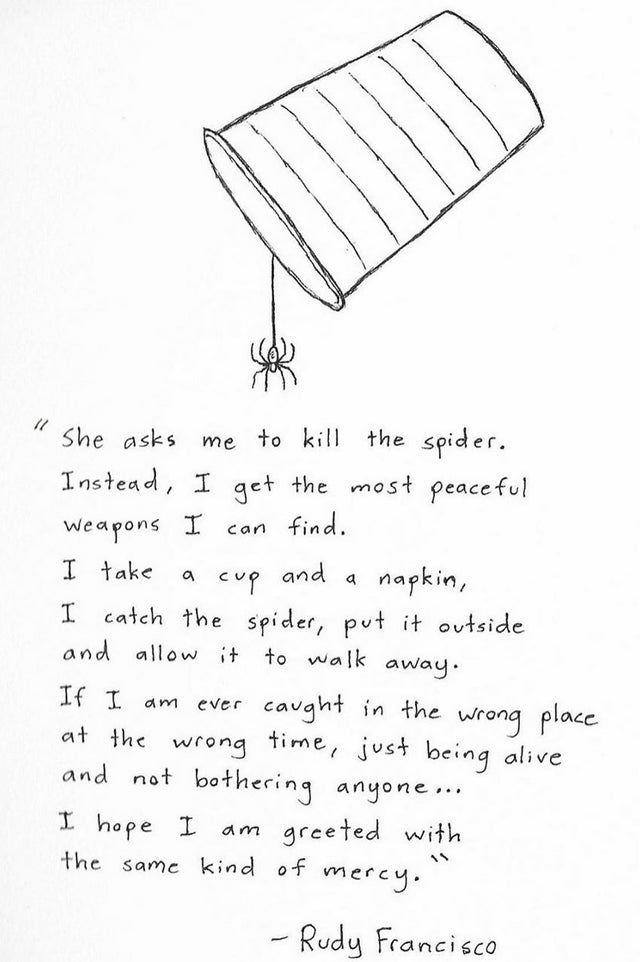 "She asks me to kill the spider.
Instead, I get the most peaceful
weapons I can find.
I take a cup and a napkin,
I catch the spider, put it outside
and allow it to walk away.
If I am ever caught in the wrong place
at the wrong time, just being alive
and not bothering anyone...
I hope I am greeted with
the same kind of mercy."
- Rudy Francisco